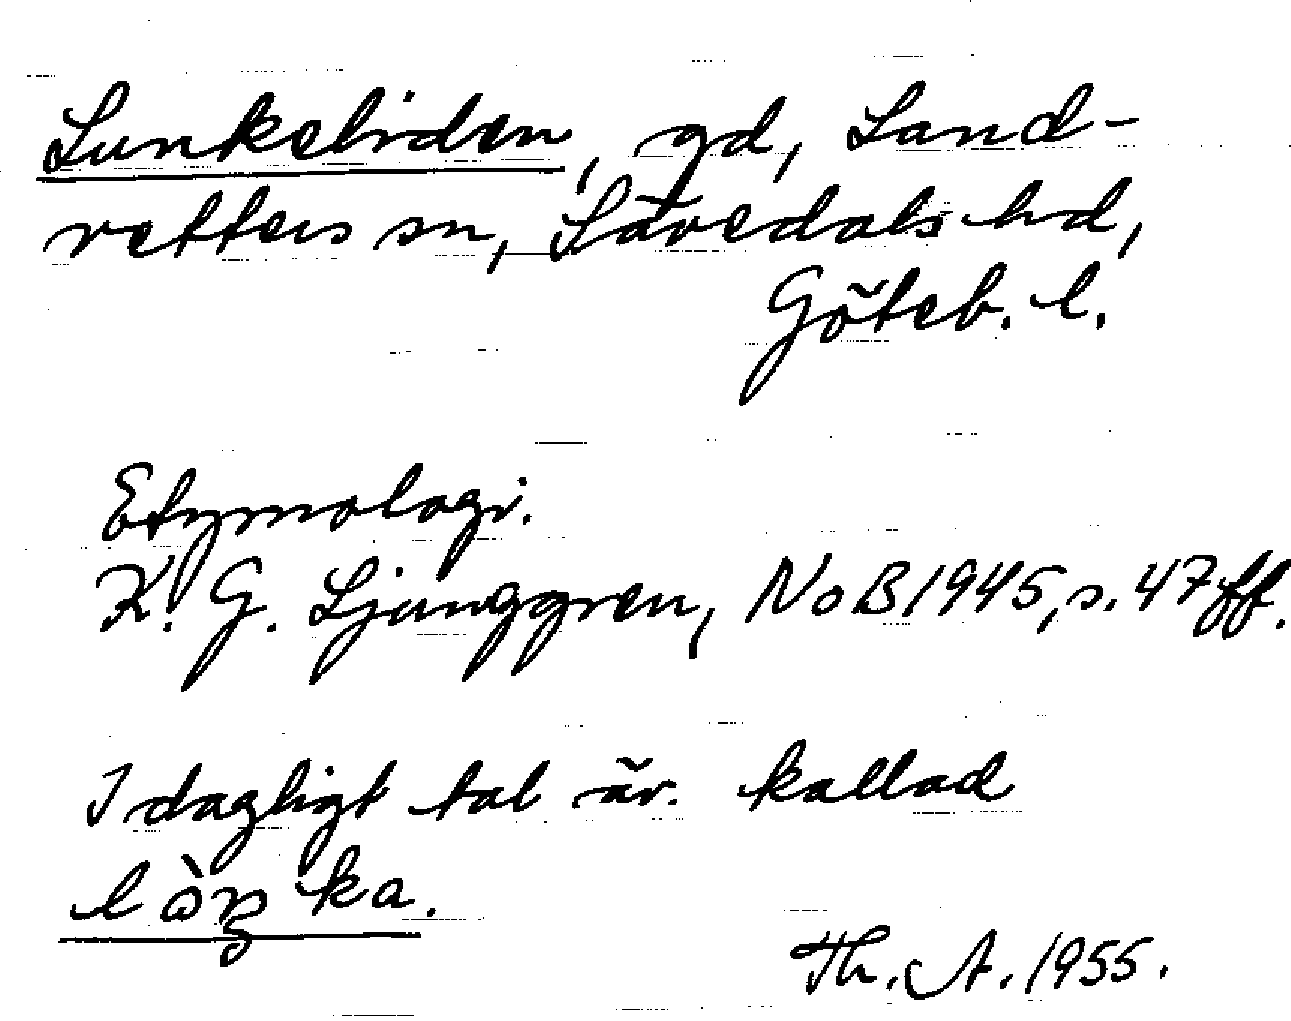 Lunkeliden, gd, Land-
vetters sn, Sävedals hd,
Göteb. l.
Etymologi.
K. G. Ljunggren, NoB 1945, s. 47 ff.
I dagligt tal är. kallad
Th. A. 1955.